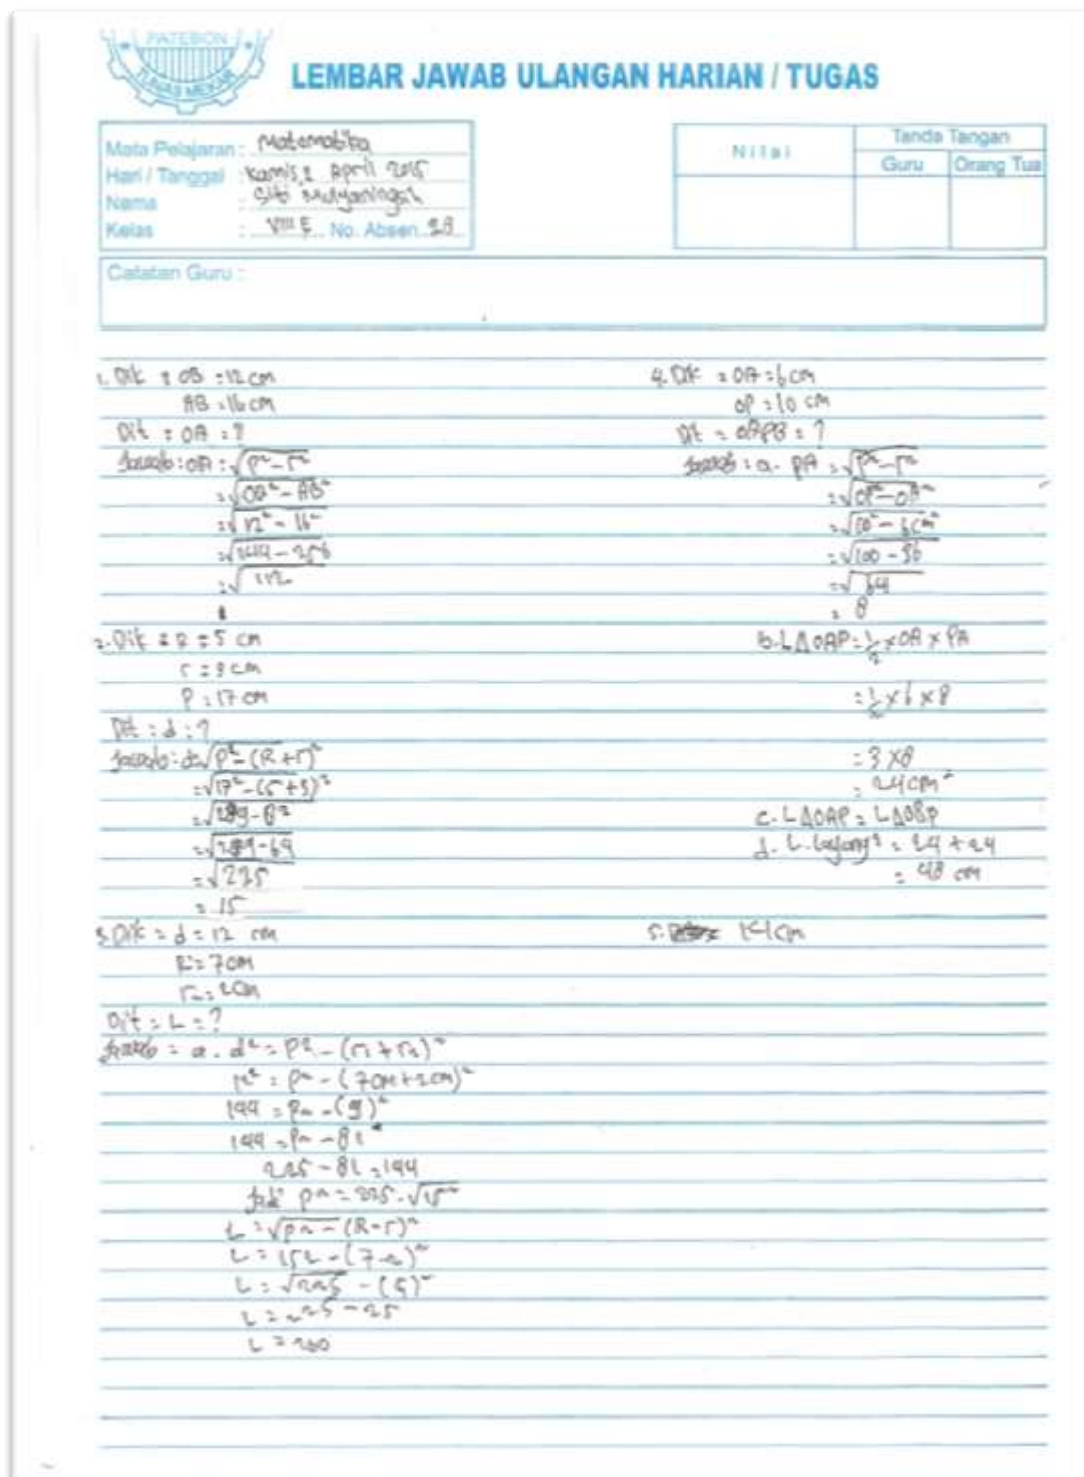 PATEBON
TUNAS MEKAR
LEMBAR JAWAB ULANGAN HARIAN / TUGAS
Mata Pelajaran : Matematika
Hari / Tanggal : Kamis, 2 April 2015
Nama : Siti Mulyaningsih
Kelas : VIII E No. Absen 28
Nilai
Tanda Tangan
Guru
Orang Tua
Catatan Guru :
1. Dik : OB = 12 cm
AB = 16 cm
Dit : OA = ?
Jawab : OA = √p² - r²
= √OB² - AB²
= √12² - 16²
= √144 - 256
= √112
2. Dik : R = 5 cm
r = 3 cm
P = 17 cm
Dit : d = ?
Jawab : d = √p² - (R + r)²
= √17² - (5 + 3)²
= √289 - 8²
= √289 - 64
= √225
= 15
3. Dik = d = 12 cm
R = 7 cm
r₂ = 2 cm
Dit = L = ?
Jawab = a. d² = P² - (r₁ + r₂)²
12² = p² - (7 cm + 2 cm)²
144 = p² - (9)²
144 = p² - 81
225 - 81 = 144
Jadi p² = 225. √15²
L = √p² - (R - r)²
L = 15² - (7 - 2)²
L = √225 - (5)²
L = 225 - 25
L = 200
4. Dik = OA = 6 cm
OP = 10 cm
Dit = OAPB = ?
Jawab : a. PA = √p² - r²
= √OP² - OA²
= √10² - 6cm²
= √100 - 36
= √64
= 8
b. L Δ OAP = 1/2 × OA × PA
= 1/2 × 6 × 8
= 3 × 8
= 24 cm²
c. L Δ OAP = L Δ OBP
d. L. layang² = 24 + 24
= 48 cm
5. 14 cm